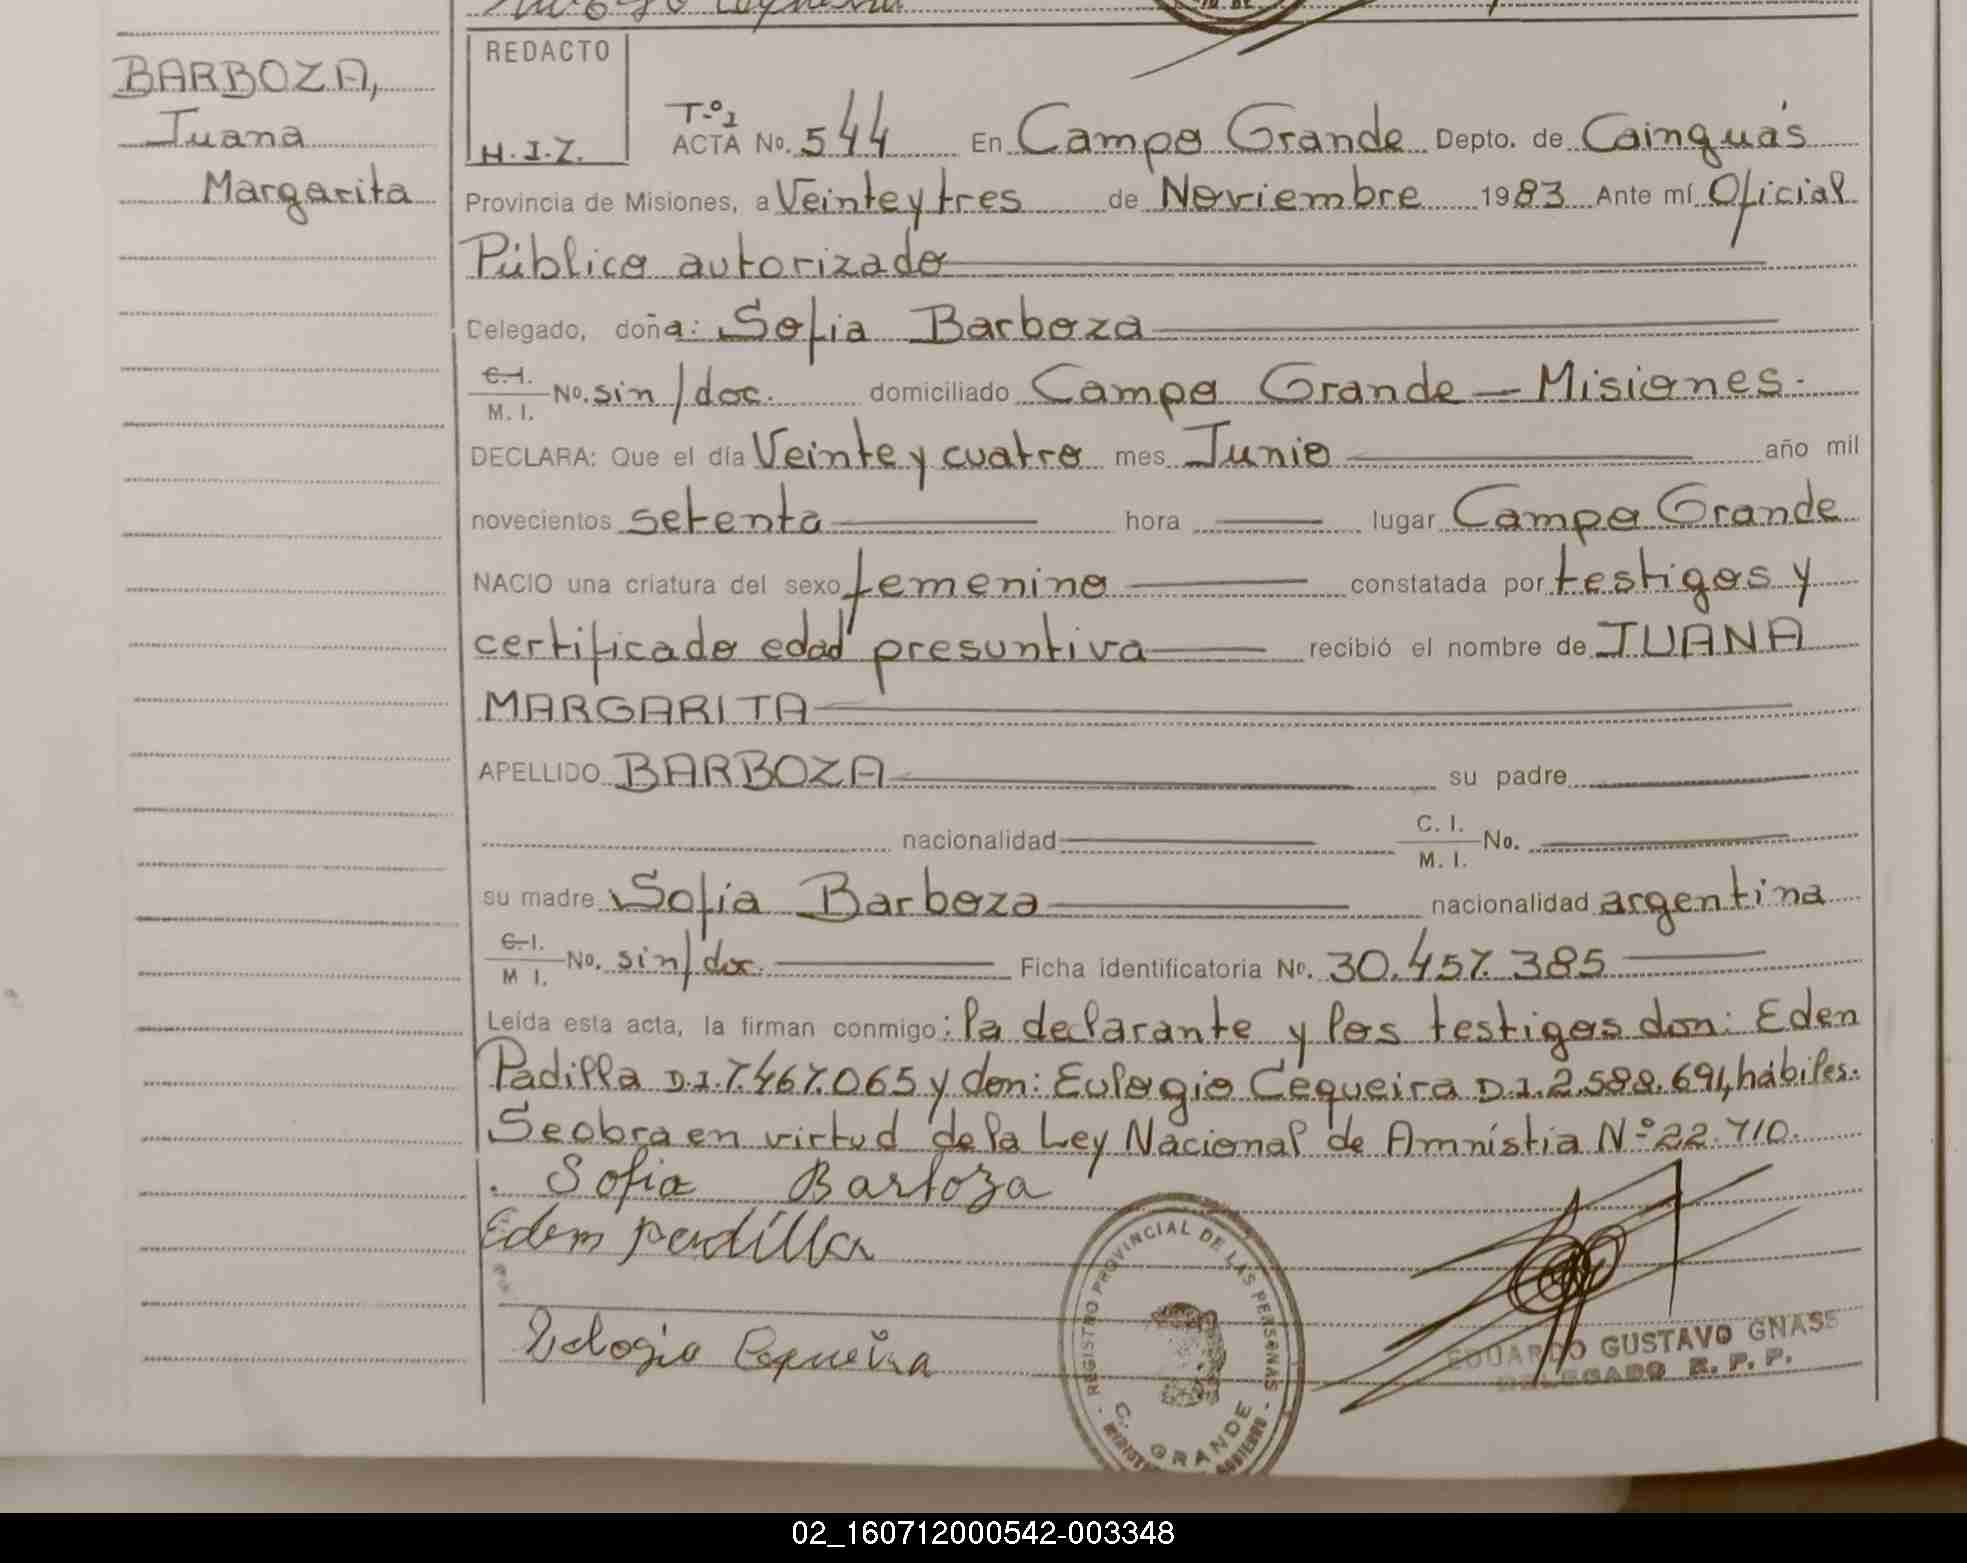 BARBOZA,
Juana
Margarita
REDACTO
H.I.Z.
Tº1
ACTA No. 544 En Campo Grande Depto. de Cainguás
Provincia de Misiones, a Veinte y tres de Noviembre 1983 Ante mí Oficial
Público autorizado
Delegado, doña: Sofia Barboza
C.I. M. I. No. sin/doc. domiciliado Campo Grande — Misiones.
DECLARA: Que el día Veinte y cuatro mes Junio año mil
novecientos setenta hora lugar Campo Grande
NACIO una criatura del sexo femenino constatada por testigos y
certificado edad presuntiva recibió el nombre de JUANA
MARGARITA
APELLIDO BARBOZA su padre
nacionalidad C. I. M. I. No.
su madre Sofia Barboza nacionalidad argentina
C.I. M I. No. sin/doc. Ficha identificatoria No. 30.457.385
Leída esta acta, la firman conmigo: la declarante y los testigos don: Eden
Padilla D.I. 7.467.065 y don: Eulogio Cequeira D.I. 2.588.691, hábiles.
Se obra en virtud de la Ley Nacional de Amnistia Nº 22.710.
Sofia Barboza
Edem padilla
Eulogio Cequeira
REGISTRO PROVINCIAL DE LAS PERSONAS
C. GRANDE
EDUARDO GUSTAVO GNASS
DELEGADO R. P. P.
02_160712000542-003348